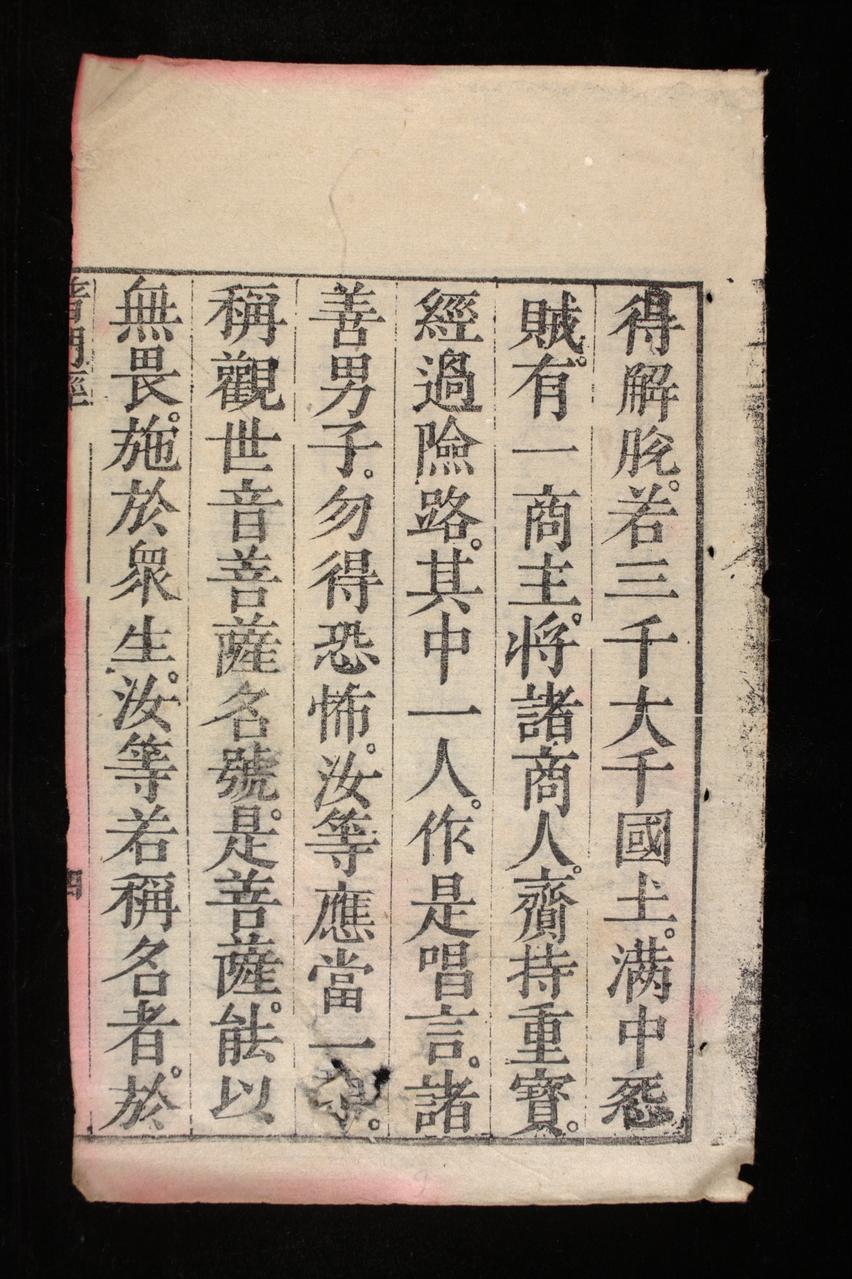 得解脫。若三千大千國土。滿中怨
賊。有一商主。將諸商人。齎持重寶。
經過險路。其中一人。作是唱言。諸
善男子。勿得恐怖。汝等應當一。
稱觀世音菩薩名號。是菩薩。能以
無畏。施於眾生。汝等若稱名者。於
普門經
四